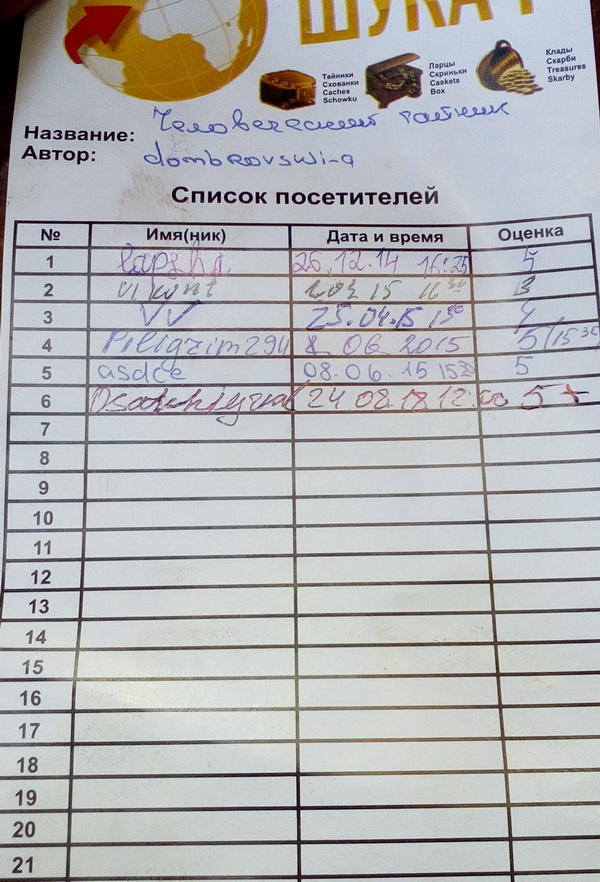 ШУКА
Тайники
Схованки
Caches
Schowku
Ларцы
Скриньки
Caskets
Box
Клады
Скарби
Treasures
Skarby
Название: Человеческий тайник
Автор: dombrovswi-a
Список посетителей
№ Имя(ник) Дата и время Оценка
1 lapshа 26.12.14 16:25 5
2 vikont 15 16 3
3 VV 25.04.15 15 4
4 Piligrim294 8 06 2015 5 (15 35
5 asdce 08.06.15 15 5
6 24 08.18 12:00 5+
7
8
9
10
11
12
13
14
15
16
17
18
19
20
21